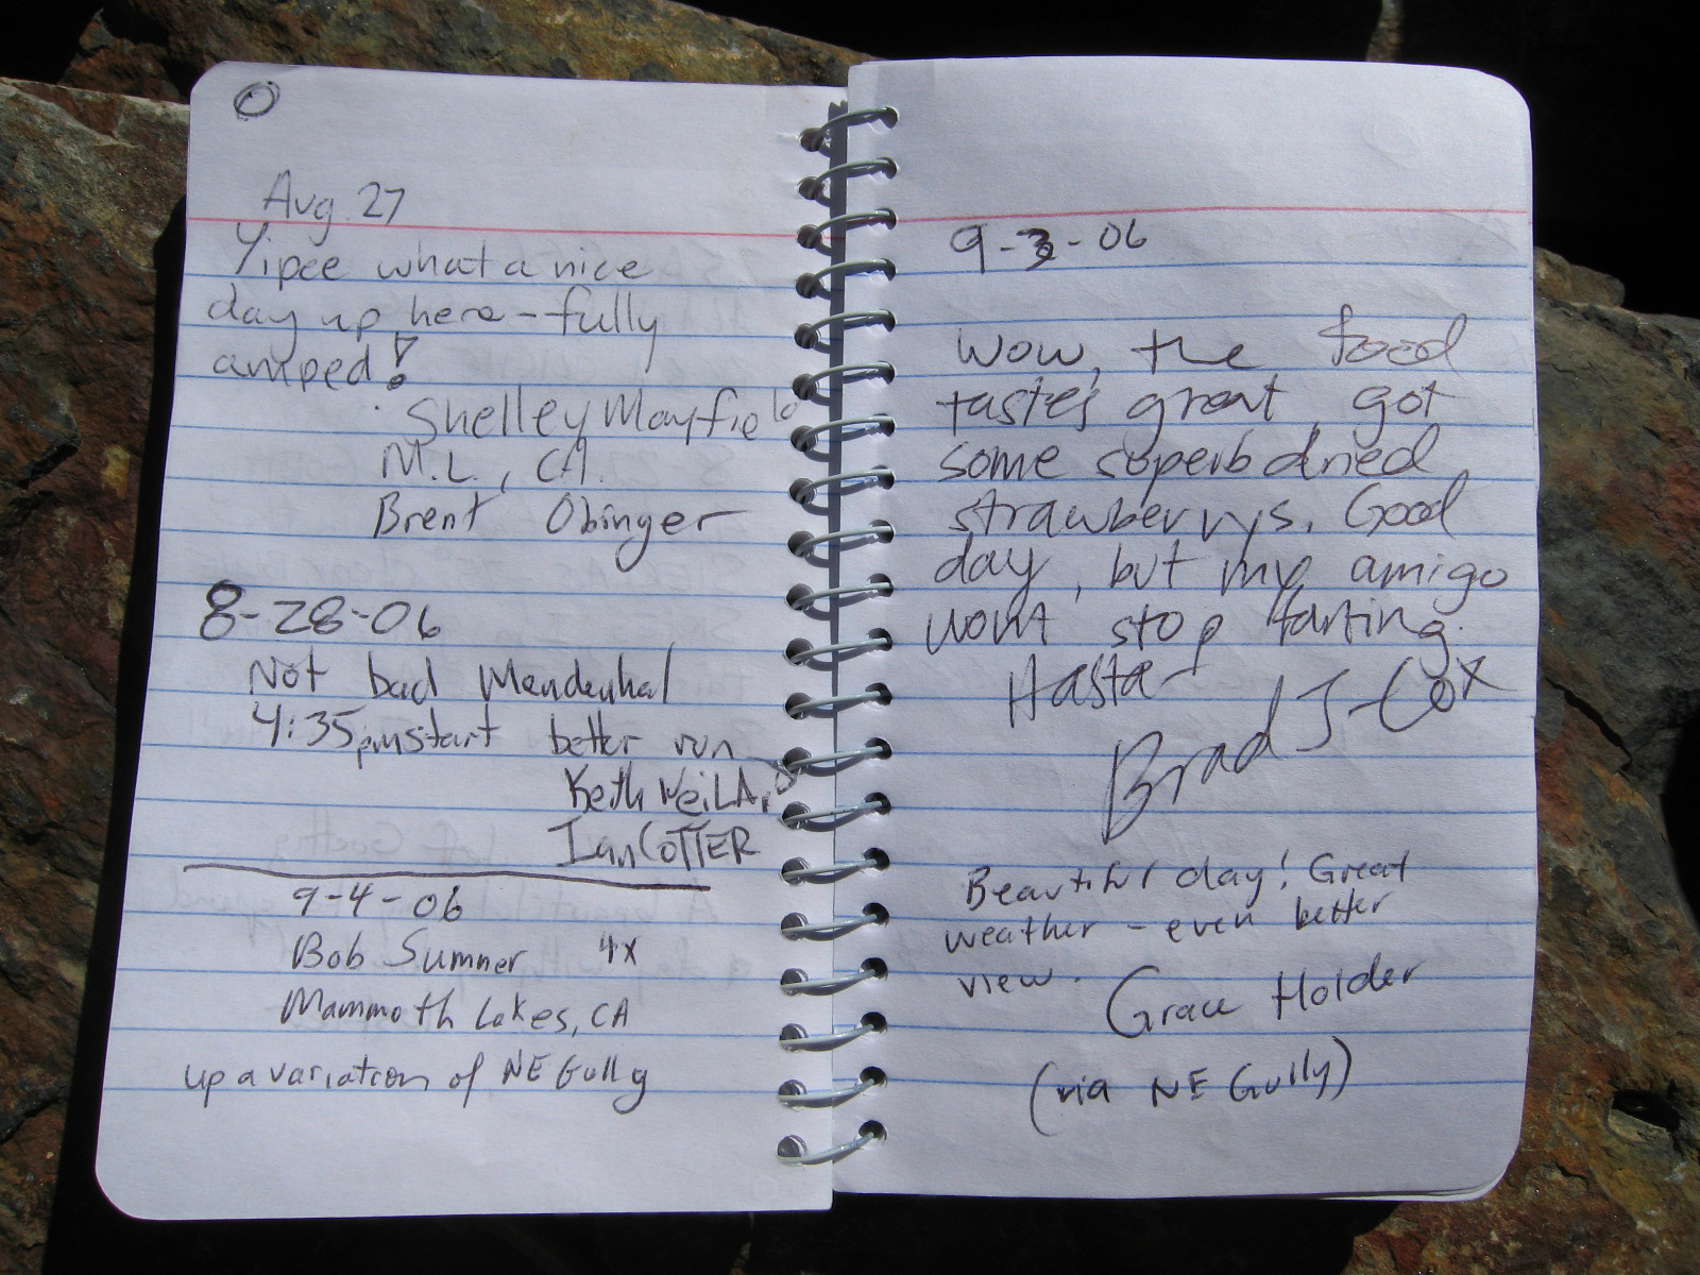 Aug. 27
Yipee what a nice
day up here - fully
amped!
Shelley Mayfield
M.L., CA.
Brent Obinger
8-28-06
Not bad Mendenhal
4:35pm start better run
Ian COTTER
9-4-06
Bob Sumner 4x
Mammoth Lakes, CA
up a variation of NE Gully
9-3-06
Wow, the food
tastes great, got
some soperb dried
strawberrys. Good
day, but my amigo
wont stop farting.
Hasta
Brad J-Cox
Beautiful day! Great
weather - even better
view.
Grace Holder
(via NE Gully)